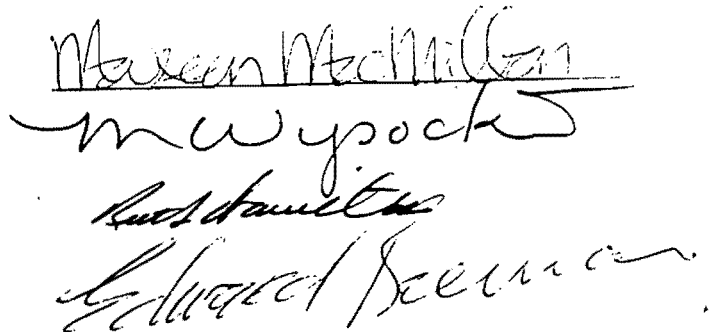 Maureen MacMillan
M Wysocki
Ruth Hamilton
Edward Beeman